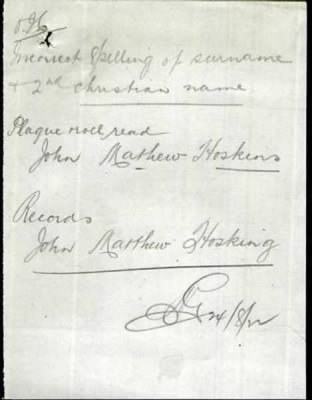 Incorrect Spelling of surname
+ 2nd christian name
Plaque roll read
John Mathew Hoskins
Records
John Matthew Hosking
24/8/22